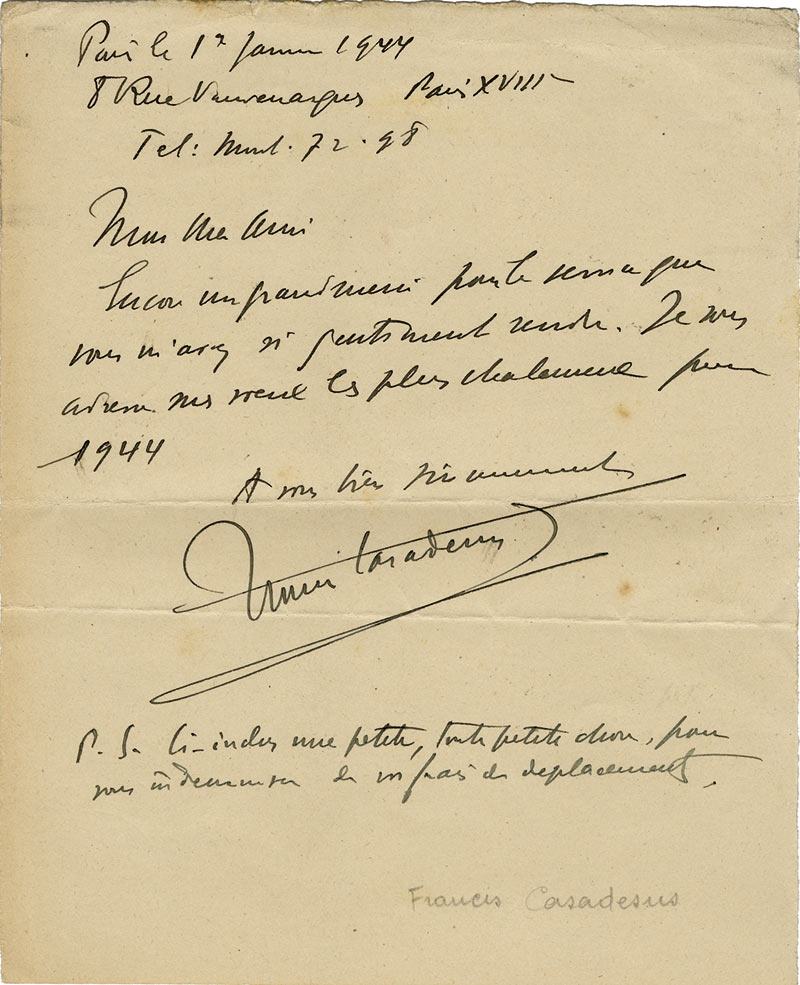 Paris le 1er Janvier 1944
8 Rue Vauvenargues Paris XVIII
Tel: Mont. 72.98
Mon cher Ami
Encore un grand merci pour le service que
vous m'avez si gentiment rendu. Je vous
adresse mes vœux les plus chaleureux pour
1944
A vous bien sincèrement
Francis Casadesus
P. S. Ci-inclus une petite, toute petite chose, pour
vous indemniser de vos frais de déplacement.
Francis Casadesus